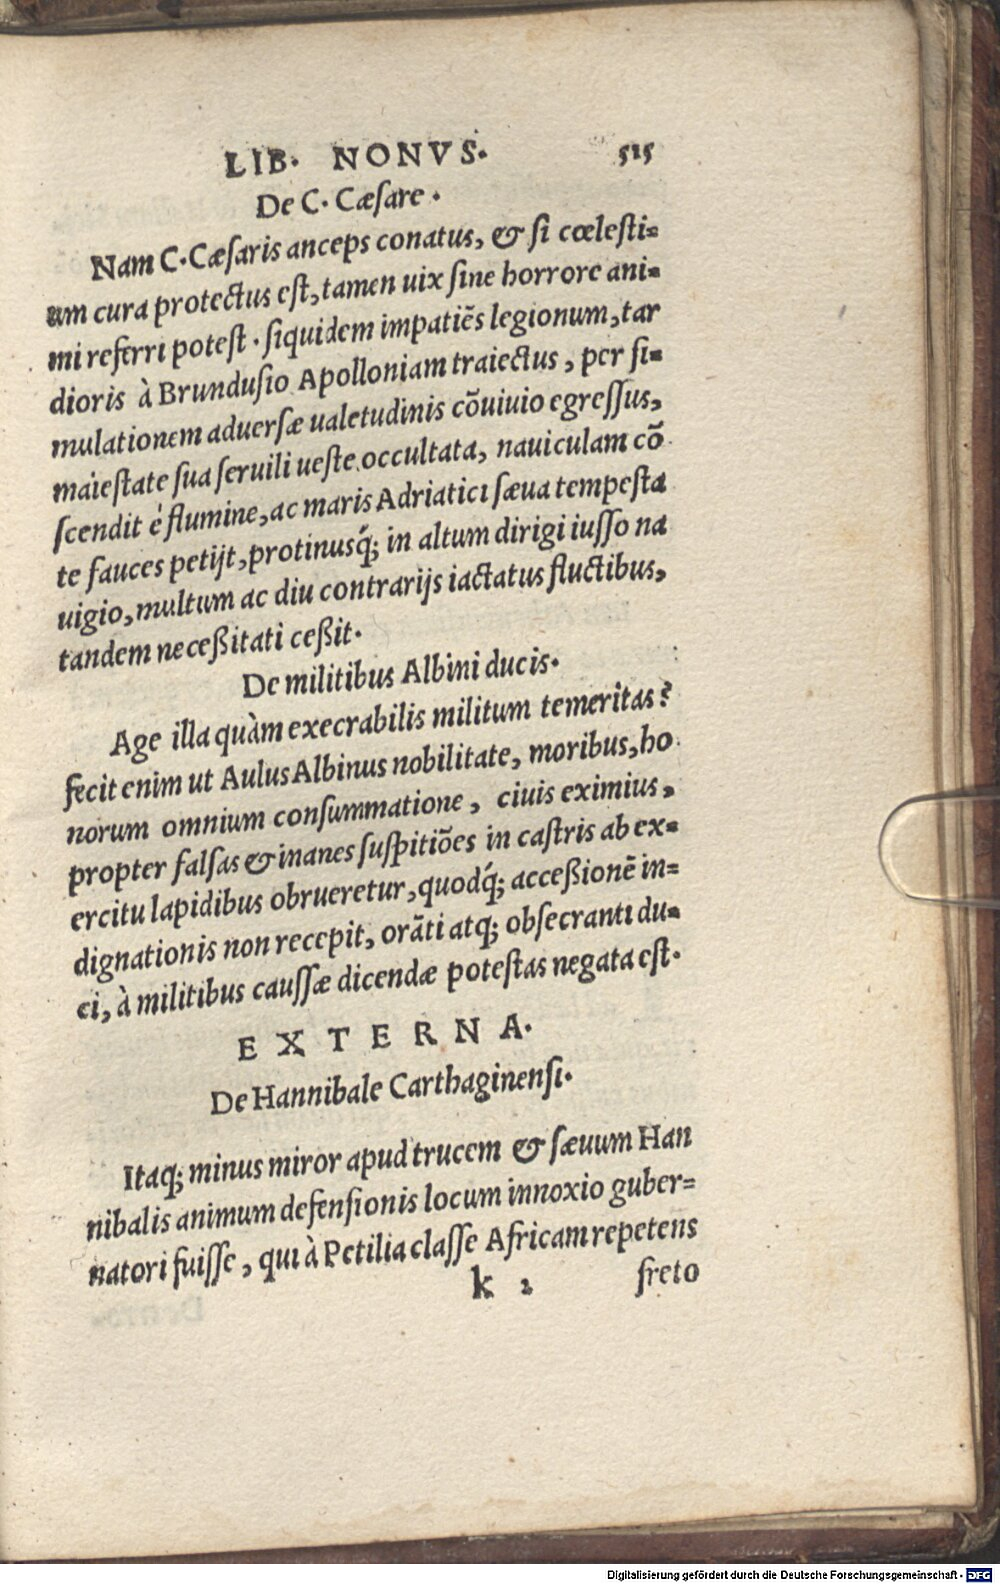 LIB. NONVS. 515
De C. Cæſare.
Nam C. Cæſaris anceps conatus, & ſi cœleſti=
um cura protectus eſt, tamen uix ſine horrore ani=
mi referri poteſt. ſiquidem impatiẽs legionum, tar
dioris à Brunduſio Apolloniam traiectus, per ſi=
mulationem aduerſæ ualetudinis cõuiuio egreſſus,
maieſtate ſua ſeruili ueſte occultata, nauiculam cõ
ſcendit è flumine, ac maris Adriatici ſæua tempeſta
te fauces petijt, protinusq́; in altum dirigi iuſſo na
uigio, multum ac diu contrarijs iactatus fluctibus,
tandem neceßitati ceßit.
De militibus Albini ducis.
Age illa quàm execrabilis militum temeritas?
fecit enim ut Aulus Albinus nobilitate, moribus, ho
norum omnium conſummatione, ciuis eximius,
propter falſas & inanes ſuſpitiões in caſtris ab ex=
ercitu lapidibus obrueretur, quodq́; acceßionẽ in=
dignationis non recepit, orãti atq; obſecranti du=
ci, à militibus cauſſæ dicendæ poteſtas negata eſt.
EXTERNA.
De Hannibale Carthaginenſi.
Itaq; minus miror apud trucem & ſæuum Han
nibalis animum defenſionis locum innoxio guber=
natori fuiſſe, qui à Petilia claſſe Africam repetens
k 2 freto
Digitalisierung gefördert durch die Deutsche Forschungsgemeinschaft - DFG